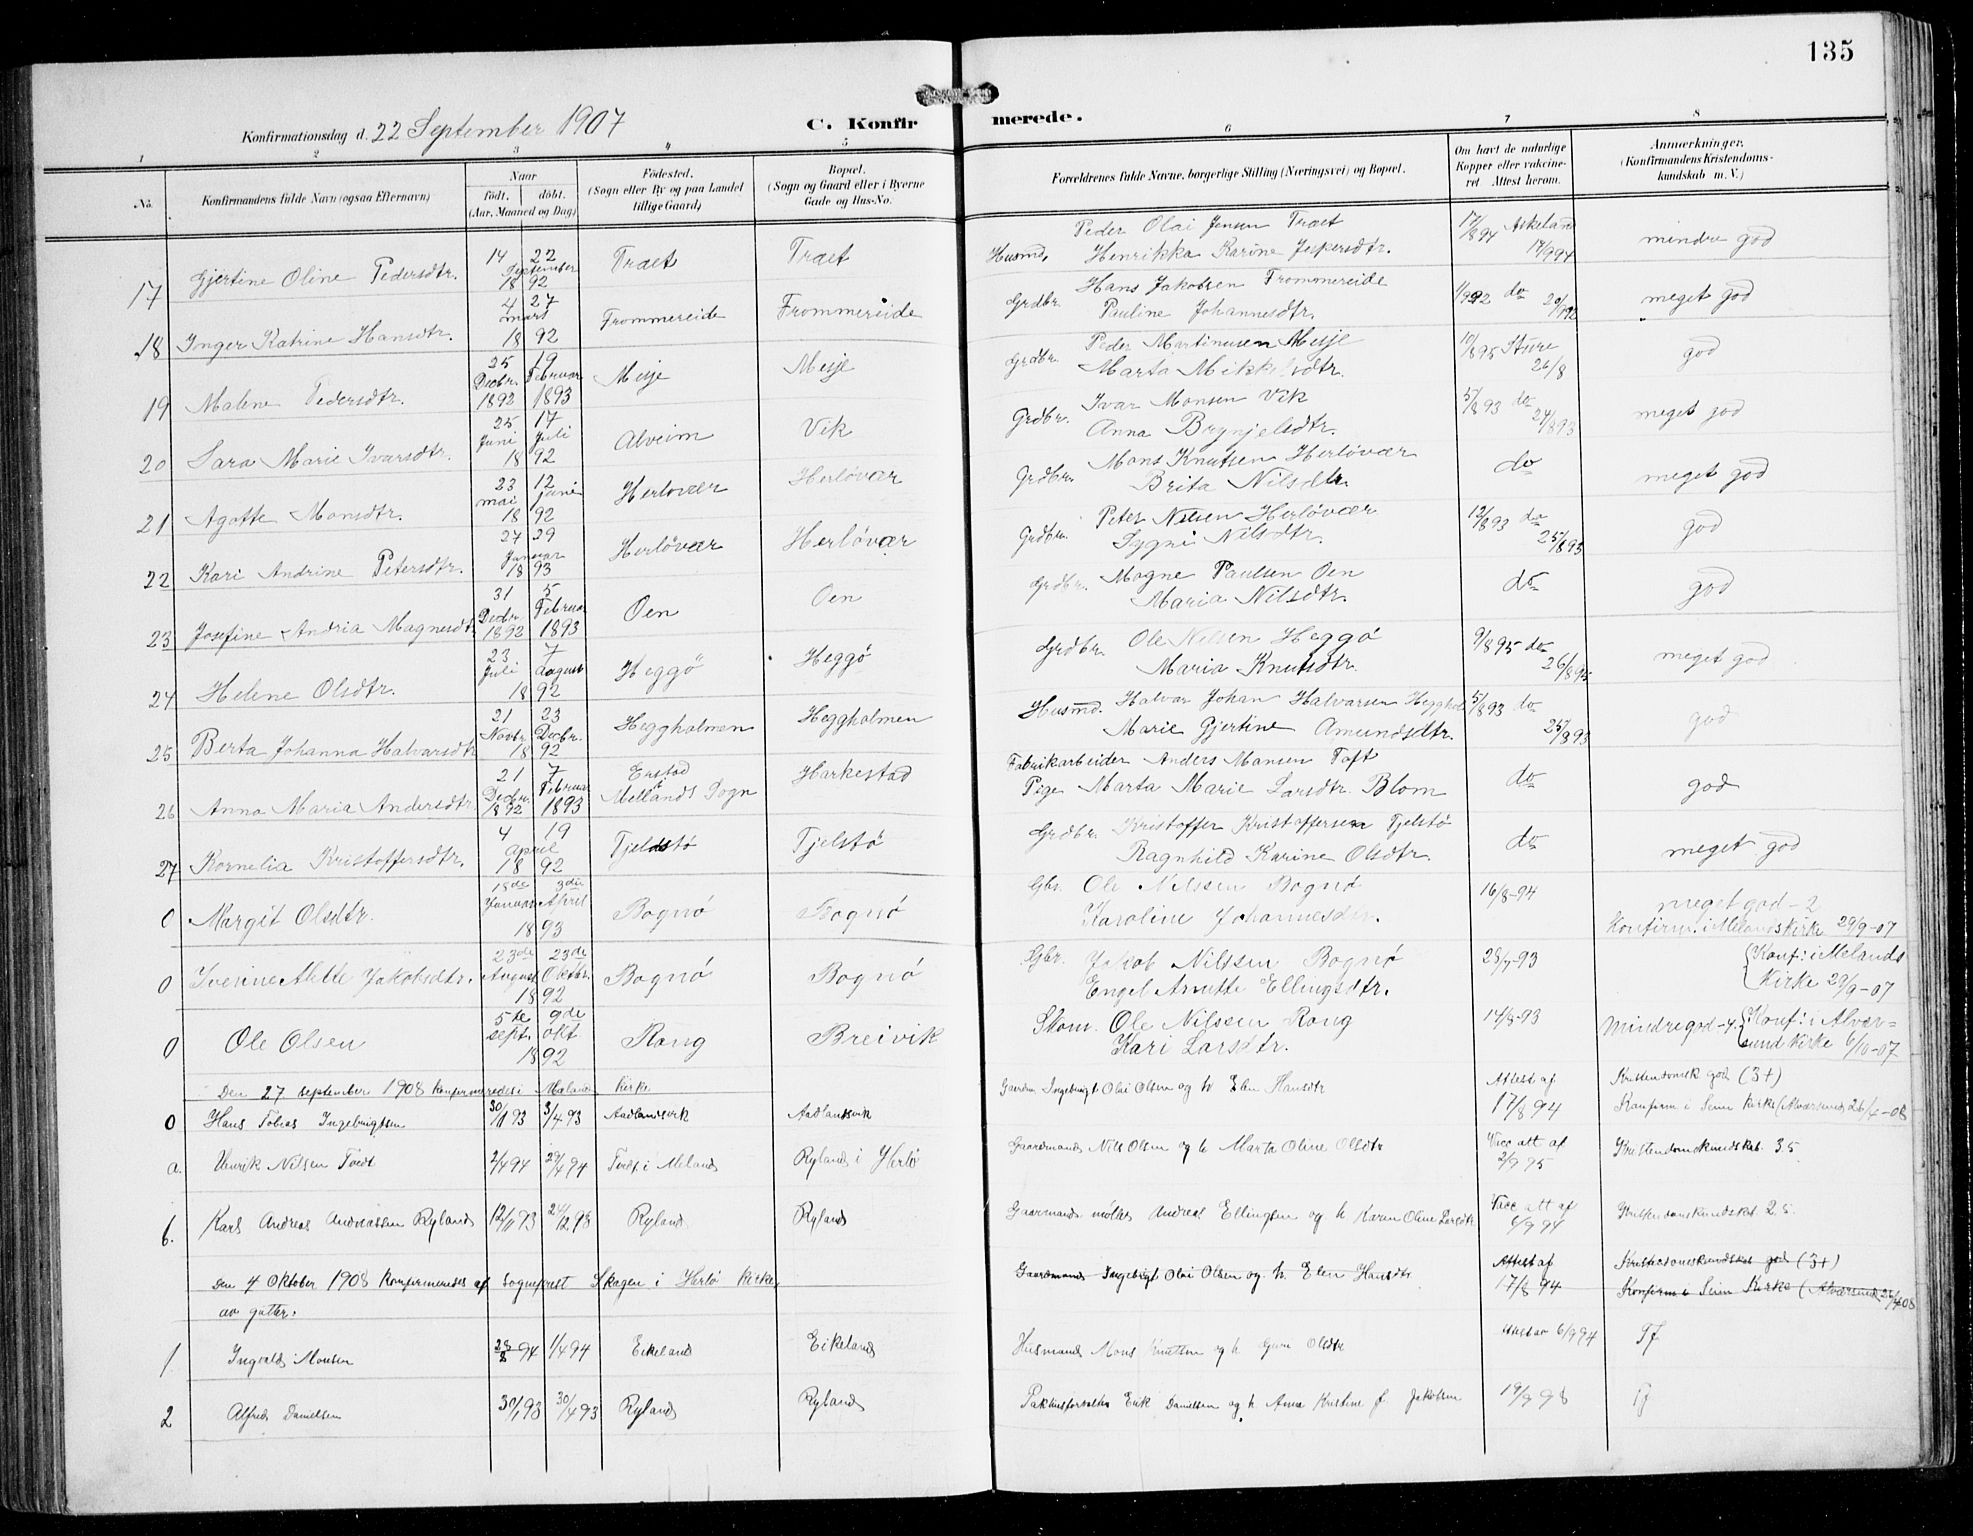 135
Konfirmationsdag d. 22 September 1907
C. Konfirmerede.
1 2 3 4 5 6 7 8
No.
Konfirmandens fulde Navn (ogsaa Efternavn)
Naar
født. døbt.
(Aar, Maaned og Dag)
Fødested.
(Sogn eller By og paa Landet tillige Gaard)
Bopæl.
(Sogn og Gaard eller i Byerne Gade og Hus-No.
Forældrenes fulde Navne, borgerlige Stilling (Næringsvei) og Bopæl.
Om havt de naturlige Kopper eller vakcineret Attest herom.
Anmærkninger.
(Konfirmandens Kristendomskundskab m. V.)
17 Gjertine Oline Pedersdtr. 14 22 September 1892 Træt Træt Husmd. Peder Olai Jensen Træt
Henrikka Karine Jespersdtr. 17/8 94 Askeland 17/9 94 mindre god
18 Inger Katrine Hansdtr. 4 27 mars 1892 Frommereide Frommereide Grdbr. Hans Jakobsen Frommereide
Pauline Johannesdtr. do meget god
19 Malene Pedersdtr. 25 Decbr. 1892 19 Februar 1893 Misje Misje Grdbr. Peder Martinusen Misje
Marta Mikkelsdtr. 10/8 95 Sture 26/8 god
20 Sara Marie Ivarsdtr. 25 Juni 17 Juli 1892 Alveim Vik Grdbr. Ivar Monsen Vik
Anna Brynjelsdtr. 5/8 93 do 24/8 93 meget god
21 Agatte Monsdtr. 23 mai 12 juni 1892 Herløvær Herløvær Grdbr. Mons Knutsen Herløvær
Brita Nilsdtr. do meget god
22 Kari Andrine Petersdtr. 27 29 Januar 1893 Herløvær Herløvær Grdbr. Peter Nilsen Herløvær
Sygni Nilsdtr. 12/8 93 do 25/8 93 god
23 Josefine Andria Magnesdtr. 31 Decbr. 1892 5 Februar 1893 Oen Oen Grdbr. Magne Paulsen Oen
Maria Nilsdtr. do god
24 Helene Olsdtr. 23 Juli 7 August 1892 Heggø Heggø Grdbr. Ole Nilsen Heggø
Maria Knutsdtr. 9/8 95 do 26/8 95 meget god
25 Berta Johanna Halvarsdtr 21 Novbr. 23 Decbr. 1892 Heggholmen Heggholmen Husmd. Halvar Johan Halvarsen Hegghol
Marie Gjertine Amundsdtr. 5/8 93 do 25/8 93 god
26 Anna Maria Andersdtr. 21 Decbr. 1892 7 Februar 1893 Mellands Sogn Harkestad Fabrikarbeider Anders Mansen Toft
Pige Marta Marie Larsdtr. Blom do god
27 Kornelia Kristoffersdtr. 4 19 April 1892 Tjeldstø Tjelstø Grdbr. Kristoffer Kristoffersen Tjelstø
Ragnhild Karine Olsdtr. do meget god
0 Margit Olsdtr. 18de Januar 3die April 1893 Bognø Bognø Gbr. Ole Nilssen Bognø
Karoline Johannesdtr. 16/8-94 meget god - 2
Konfirm. i Melands kirke 29/9-07
0 Iverine Alette Jakobsdtr. 23de August 23de Oktbr. 1892 Bognø Bognø Gbr. Jakob Nilssen Bognø
Engel Anutte Ellingsdtr. 28/7-93 Konf: i Melands
Kirke 29/9-07
0 Ole Olsen 5te sept. 9de okt 1892 Rong Breivik Skom. Ole Nilssen Rong
Kari Larsdtr. 14/8-93 Mindre god - 4. Konf: i Alver-
sund Kirke 6/10-07
Den 27 september 1908 konfirmeredes i Meland kirke
0 Hans Tobias Ingebrigtsen 30/1 93 3/4 93 Aadlandsvik Aadlandsvik Gaardm Ingebrigt Olai Olsen og h Elen Hansdtr Attest af 17/8 94 Kristendomsk god (3+)
Konfirm i Seim kirke (Alversund 26/4-08
a. Henrik Nilsen Tvedt 2/4 94 29/4 94 Tvedt i Meland Ryland i Herlø Gaardmand Nils Olsen og h Marta Oline Olsdtr Vacc att af 2/9 95 Kristendomskundskab. 3.5
b. Karl Andreas Andreassen Ryland 12/11 93 Ryland Ryland Gaarmand møller Andreas Ellingsen og h Karen Oline Larsdtr Vacc att af 6/9 94 Kristendomskundskab 2.5.
Den 4 Oktober 1908 konfirmeredes af sogneprest Skagen i Herlø kirke,
av gutter.
Gaardmand Ingebrigt Olai Olsen og h. Elen Hansdtr Attest af 17/8 94 Kristendomskundskab god (3+)
Konfirm i Seim Kirke (Alversund 26/4 08
1 Ingvald Monsen 94 1/4 94 Eikeland Eikeland Husmand Mons Knutsen og h Guro Olsdtr Attest av 6/9 94 Tf
2 Alfred Danielsen 30/1 93 30/4 93 Ryland Ryland Pakhusforvalter Erik Danielsen og h Anna Kristine f. Jakobsen